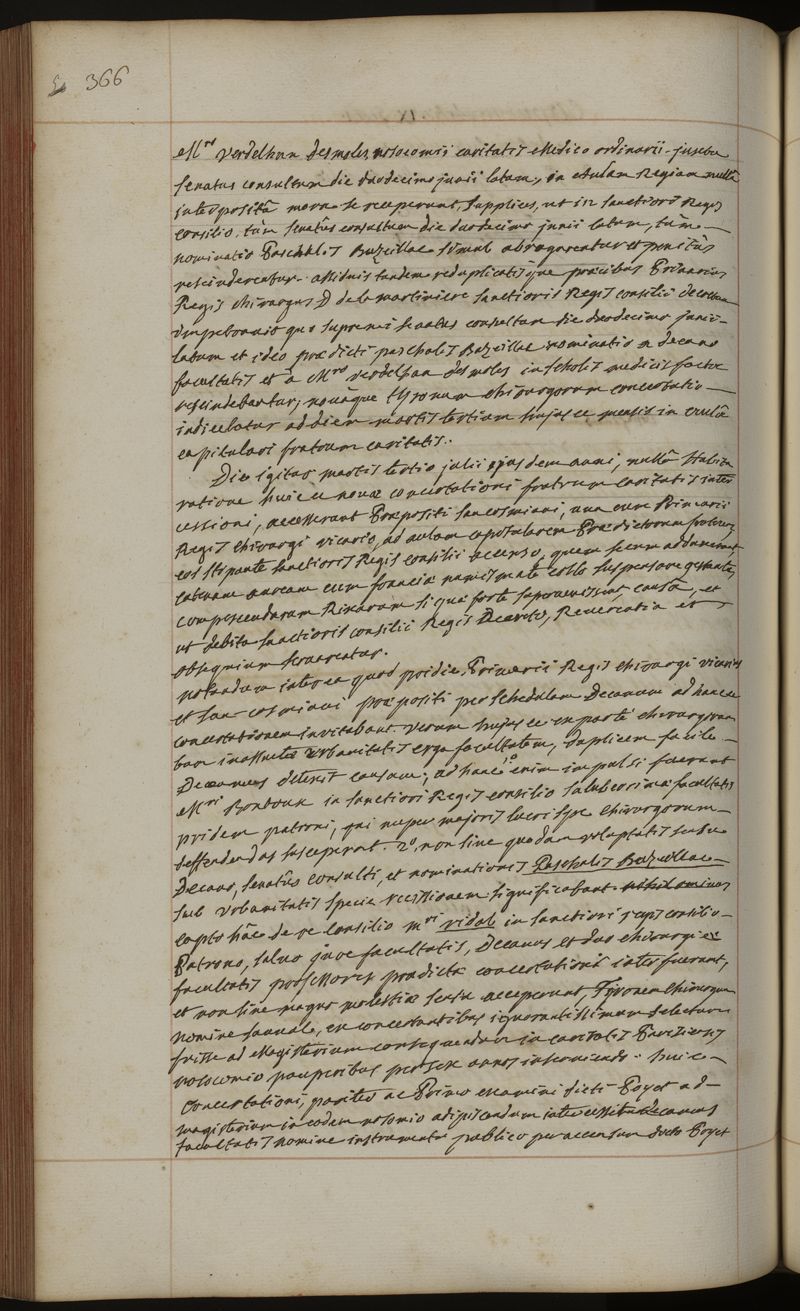 366
Mro verdelhan desmoles, nosocomii caritatis Medico ordinario. jusetu
senatus consultum die duodecimo junii latum, in Aulam Regiam nullâ
interpositâ mora se receperunt, supplices, ut in sanctiori Regis
consilio, tùm senatûs consultum die duodecimo junii latum, tùm
nominatio Paschalis Buzeillac simul abrogarentur et penitùs
rescinderentur. assiduis tandem reduplicatisque precibus Primarius
Regis chirurgus D de la martiniere sanctioris Regis consilii decretum
impetravit quo supremi senatus consultum die duodecimo junii
latum et ideò prædicti paschalis Buzeillac nominatio a decano
facultatis et à Mro verdelhan desmoles in scholis medicis facta
rescindebantur; novâque tyronum chirurgorum concertatio
indicebatur ad diem martis tertium hujusce mensis in aulâ
capitulari fratrum caritatis.
Die igitur martis tertio julii ejusdem anni, nullâ habita
ratione huicce novæ concertationi fratrum caritatis inter
cessioni, accesserunt Præpositi sancosmiani, una cum Primarii
Regis chirurgi vicario, ad aulam capitularem Prædictorum fratrum,
eos stipante sanctioris Regis consilii accenso, quem secum adduxerant,
catenam auream cum franciæ numismate collo suspensam gestante,
compescendarum Rixarum si quæ forte supervenissent, causâ, et
ut debita sanctioris consilii Regis Decreto, Reverentia et
obsequium servarentur.
notandum interea quod pridie, Primarii Regis chirurgi vicarius
et san-cosmiani præpositi per schedulam Decanum ad hancce
concertationem invitabant. verum hujusce ex parte chirurgorum
tam inassuetæ urbanitatis erga facultatem, duplicem facile
Decanus detexit causam; ad hanc 1o enim impulsi fuerant
Mri Rondoux in sanctiori Regis consilio saluberrimæ facultatis
pridem patroni, qui nuper majoris lucri spe chirurgorum
deffendendas susceperat. 2o, non sine quodam voluptatis sensu
Decano, senatûs consulti, et nominationis Paschalis Buzeillac
sub urbanitatis specie rescissionem significabant
capto hâc de re consilio mri vidal in sanctiori regis consilio
Patrono, salvo jure facultatis, Decanus et duo chirurgiæ
facultatis professores prædictæ concertationi interfuerunt,
et non sine magno molestiæ sensu acceperunt, Tyronem chirurgum
nomine sauvale, ex concertantibus ignorantissimum selectum
fuisse ad Magisterium consequendum in caritatis Parisiensis
nosocomio pauperibus per sex annos inserviendo. huicce
concertationi, pariter ac Primo examini dicti Poyet ad
magisterium in eodem nosomio adipiscendum intercessit Decanus
facultatis nomine instrumento publico per accensum ducto Poyet